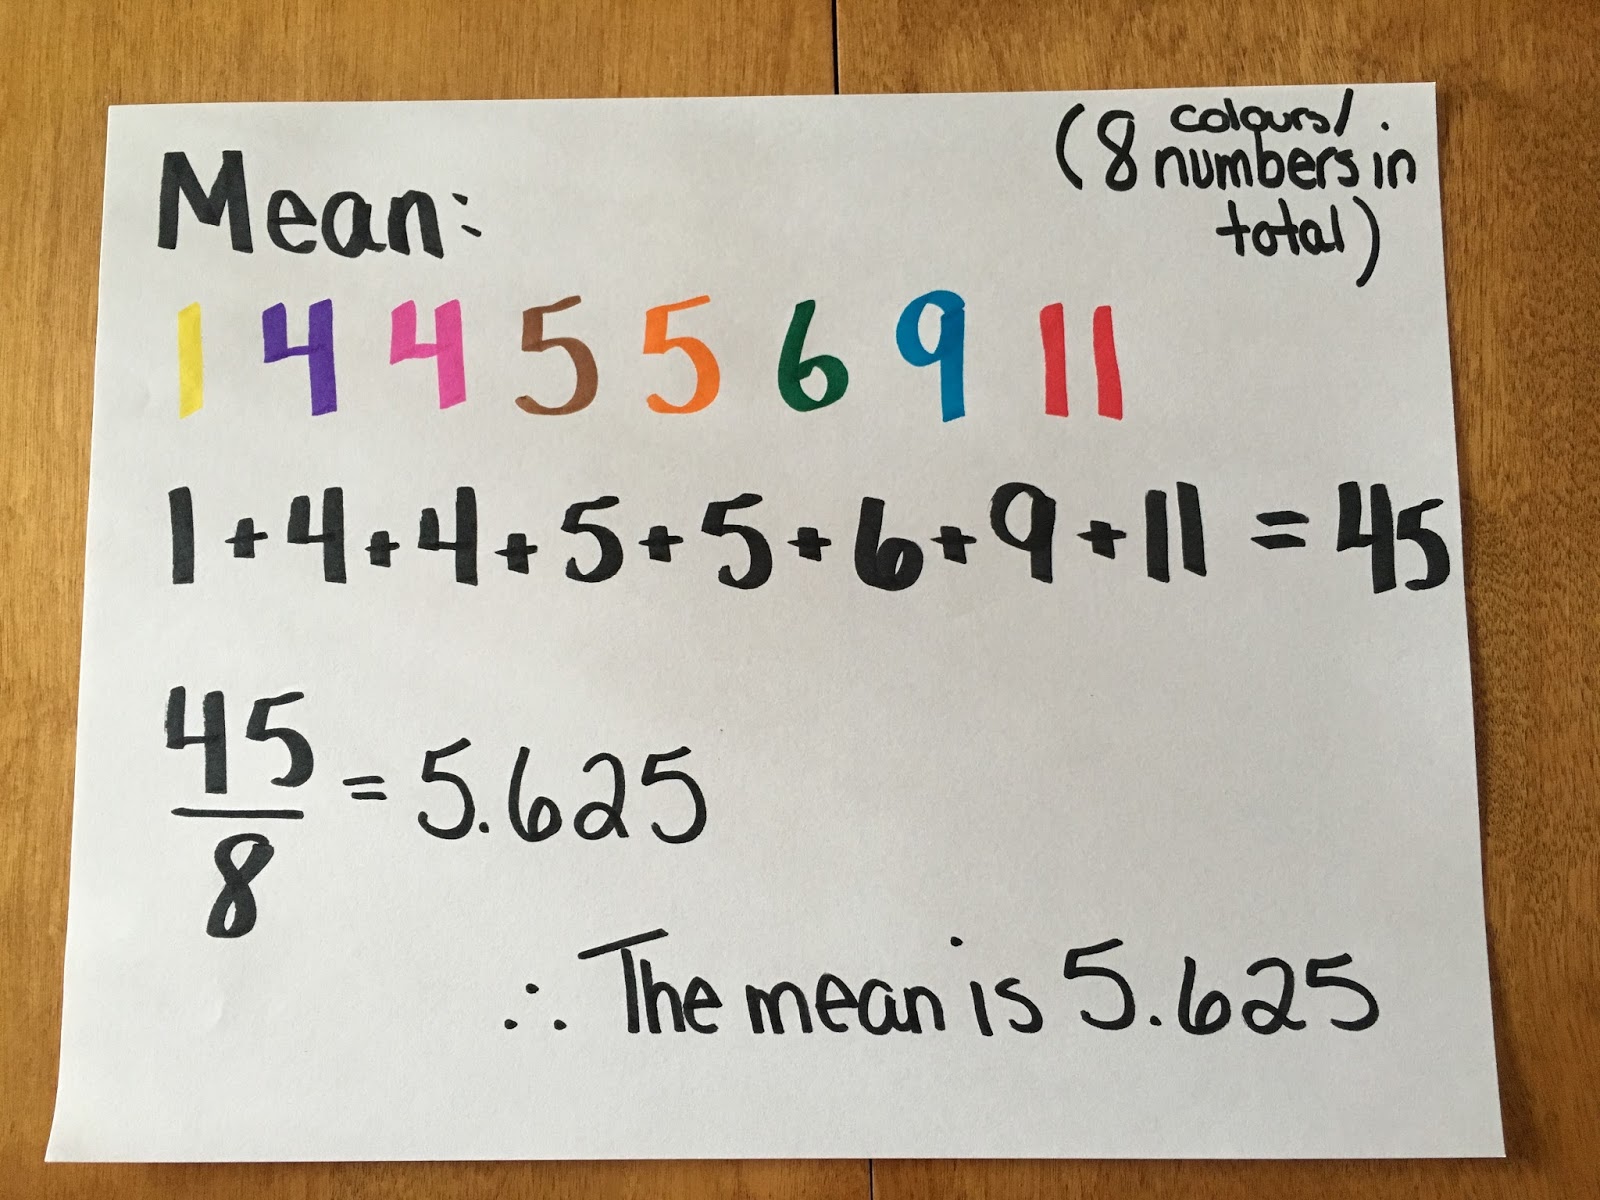 Mean:
(8 colours/
numbers in
total)
1 4 4 5 5 6 9 11
1 + 4 + 4 + 5 + 5 + 6 + 9 + 11 = 45
45/8 = 5.625
∴ The mean is 5.625